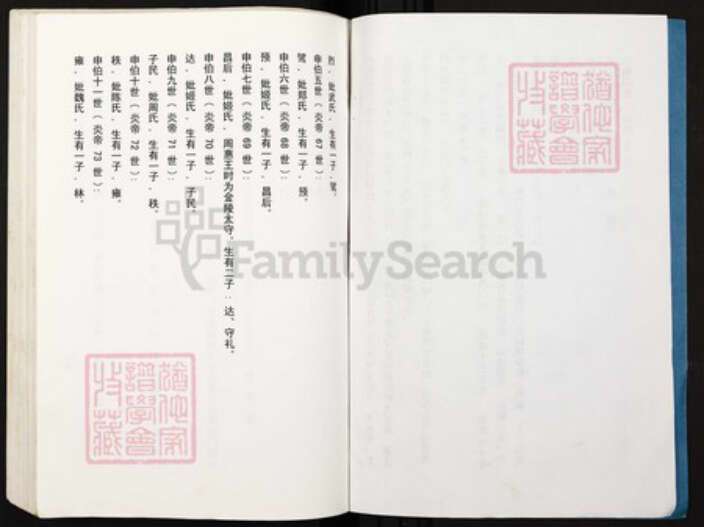 烈．妣武氏．生有一子．鸾．
申伯五世（炎帝 67 世）：
鸾．妣郑氏．生有一子．预．
申伯六世（炎帝 68 世）：
预．妣姬氏．生有一子．昌后．
申伯七世（炎帝 69 世）：
昌后．妣姬氏．周惠王时为金陵太守．生有二子：达、守礼．
申伯八世（炎帝 70 世）：
达．妣姬氏．生有一子．子民．
申伯九世（炎帝 71 世）：
子民．妣周氏．生有一子．秩．
申伯十世（炎帝 72 世）：
秩．妣陈氏．生有一子．雍．
申伯十一世（炎帝 73 世）：
雍．妣魏氏．生有一子．林．
犹他家
譜學會
珍藏
犹他家
譜學會
珍藏
FamilySearch